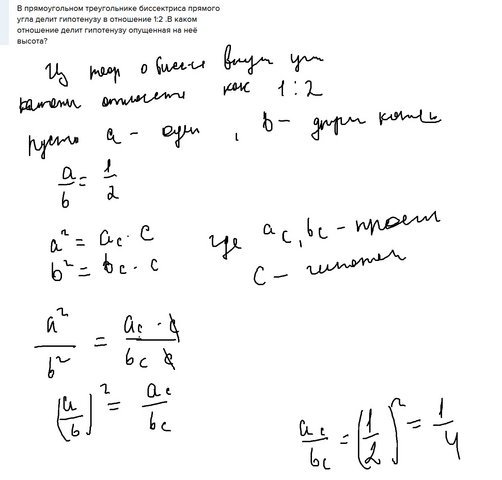 В прямоугольном треугольнике биссектриса прямого
угла делит гипотенузу в отношение 1:2 .В каком
отношение делит гипотенузу опущенная на неё
высота?
Из теор о биссе внутр угл
катеты относятся как 1 : 2
пусть a - один , b - другой катет
a/b = 1/2
a² = ac · c
b² = bc · c
где ac, bc - проекц
c - гипотен
a²/b² = ac · c / bc c
(a/b)² = ac/bc
ac/bc = (1/2)² = 1/4